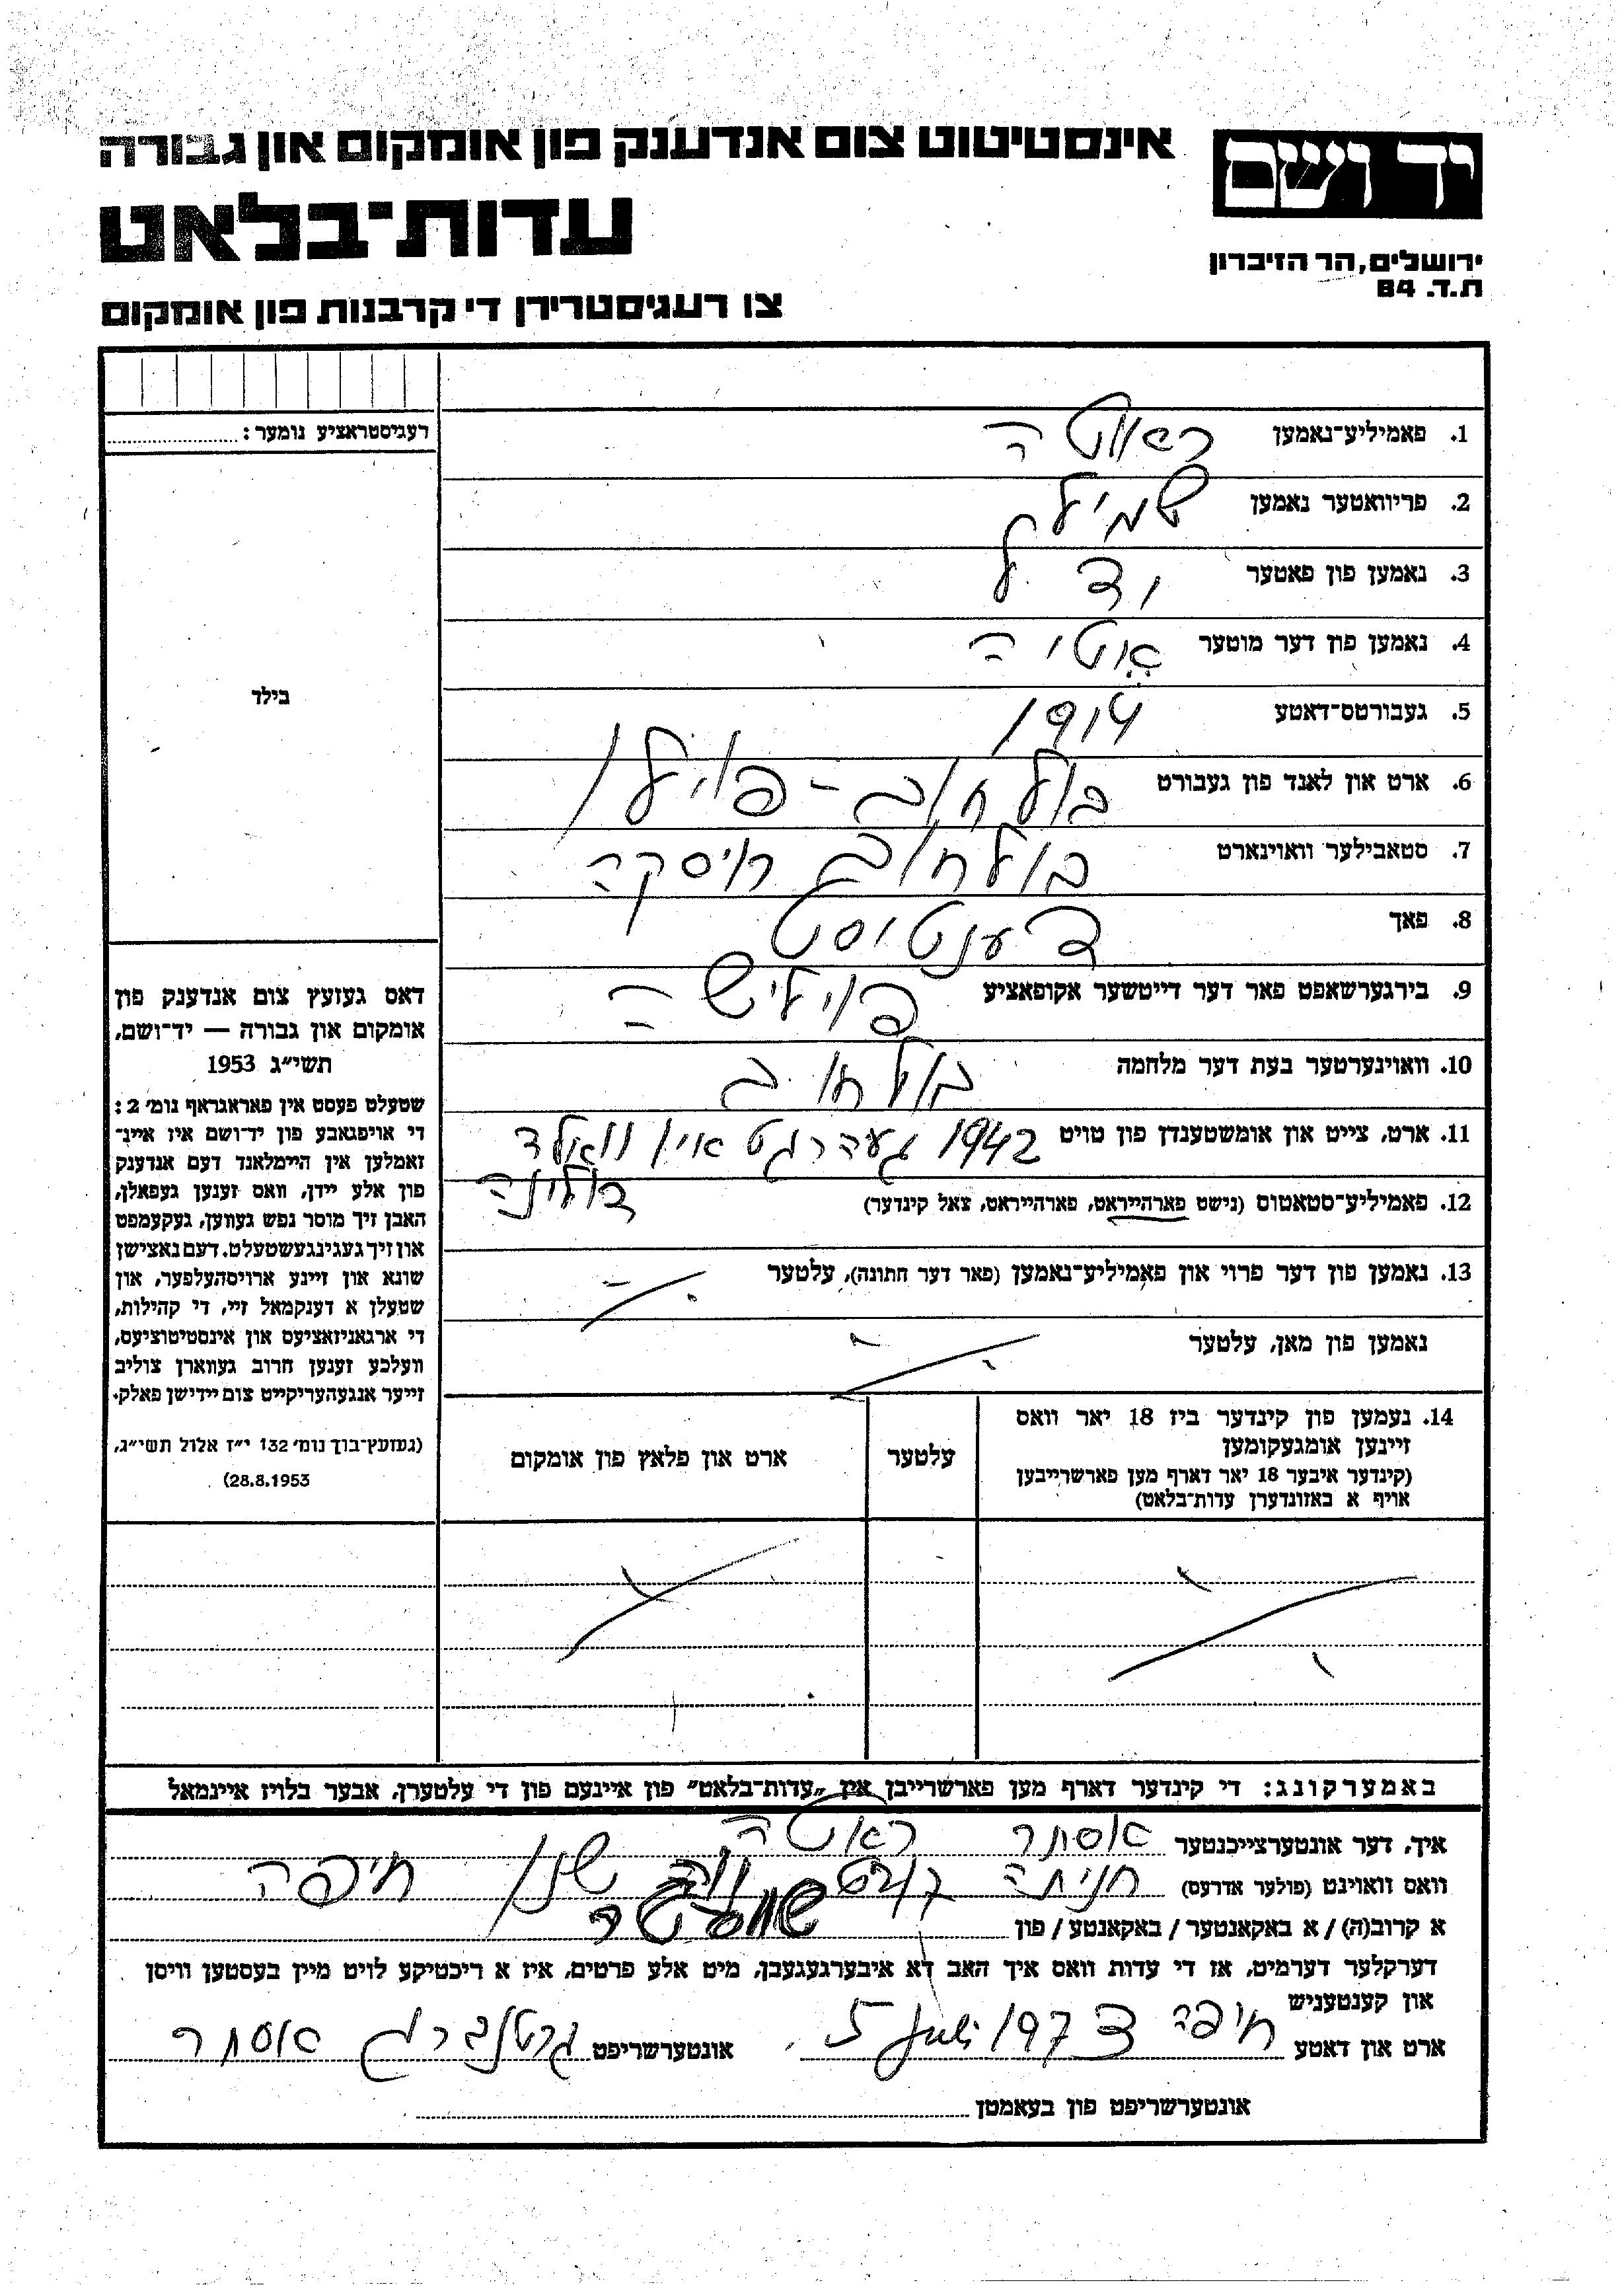 יד ושם
אינסטיטוט צום אנדענק פון אומקום און גבורה
עדות־בלאט
ירושלים, הר הזיכרון
ת.ד. 84
צו רעגיסטרירן די קרבנות פון אומקום
רעגיסטראציע נומער:
1. פאמיליע־נאמען
2. פריוואטער נאמען שמיל
3. נאמען פון פאטער
4. נאמען פון דער מוטער
5. געבורטס־דאטע 1914
בילד
6. ארט און לאנד פון געבורט בולחוב - פוילן
7. סטאבילער וואוינארט בולחוב
8. פאך דענטיסט
9. בירגערשאפט פאר דער דייטשער אקופאציע פוילישה
10. וואוינערטער בעת דער מלחמה בולחוב
11. ארט, צייט און אומשטענדן פון טויט 1942 אין וואלד
12. פאמיליע־סטאטוס (נישט פארהייראט, פארהייראט, צאל קינדער)
13. נאמען פון דער פרוי און פאמיליע־נאמען (פאר דער חתונה), עלטער
נאמען פון מאן, עלטער
14. נעמען פון קינדער ביז 18 יאר וואס
זיינען אומגעקומען
(קינדער איבער 18 יאר דארף מען פארשרייבן
אויף א באזונדערן עדות־בלאט)
עלטער
ארט און פלאץ פון אומקום
דאס געזעץ צום אנדענק פון
אומקום און גבורה — יד־ושם,
תשי״ג 1953
שטעלט פעסט אין פאראגראף נומ׳ 2:
די אויפגאבע פון יד־ושם איז איינ־
זאמלען אין היימלאנד דעם אנדענק
פון אלע יידן, וואס זענען געפאלן,
האבן זיך מוסר נפש געווען, געקעמפט
און זיך געגינגעשטעלט, דעם נאצישן
שונא און זיינע ארויסהעלפער, און
שטעלן א דענקמאל זיי, די קהילות,
די ארגאניזאציעס און אינסטיטוציעס,
וועלכע זענען חרוב געווארן צוליב
זייער אנגעהעריקייט צום יידישן פאלק.
(געזעץ־בוך נומ׳ 132 י״ז אלול תשי״ג,
28.8.1953)
באמערקונג: די קינדער דארף מען פארשרייבן אין „עדות־בלאט״ פון איינעם פון די עלטערן, אבער בלויז איינמאל
איך, דער אונטערצייכנטער אסתר
וואס וואוינט (פולער אדרעס) חניתה נווה שנן חיפה
א קרוב(ה) / א באקאנטער / באקאנטע / פון
דערקלער דערמיט, אז די עדות וואס איך האב דא איבערגעגעבן, מיט אלע פרטים, איז א ריכטיקע לויט מיין בעסטען וויסן
און קענטעניש
ארט און דאטע חיפה 5 Juli 1973 אונטערשריפט גרטנברג אסתר
אונטערשריפט פון בעאמטן